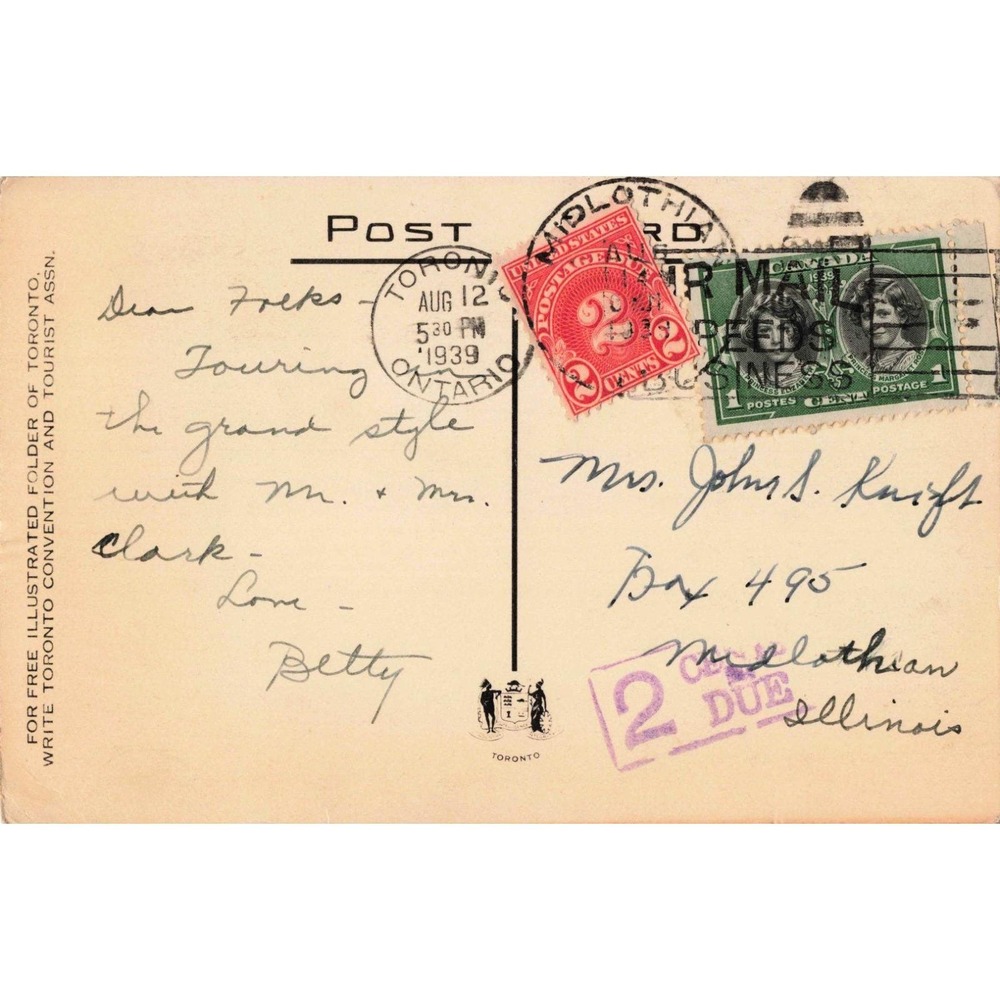 POST CARD
FOR FREE ILLUSTRATED FOLDER OF TORONTO,
WRITE TORONTO CONVENTION AND TOURIST ASSN.
TORONTO
AUG 12
5 30 PM
1939
ONTARIO
UNITED STATES
POSTAGE DUE
2
2 CENTS 2
MIDLOTHIAN
AIR MAIL
SPEEDS
BUSINESS
CANADA
1939
PRINCESS ELIZABETH
PRINCESS MARGARET ROSE
1 POSTES CENT POSTAGE 1
Dear Folks -
Touring
the grand style
with Mr. + Mrs.
Clark -
Love -
Betty
Mrs. John S. Knight
Box 495
Midlothian
Illinois
2 CENTS
DUE
TORONTO